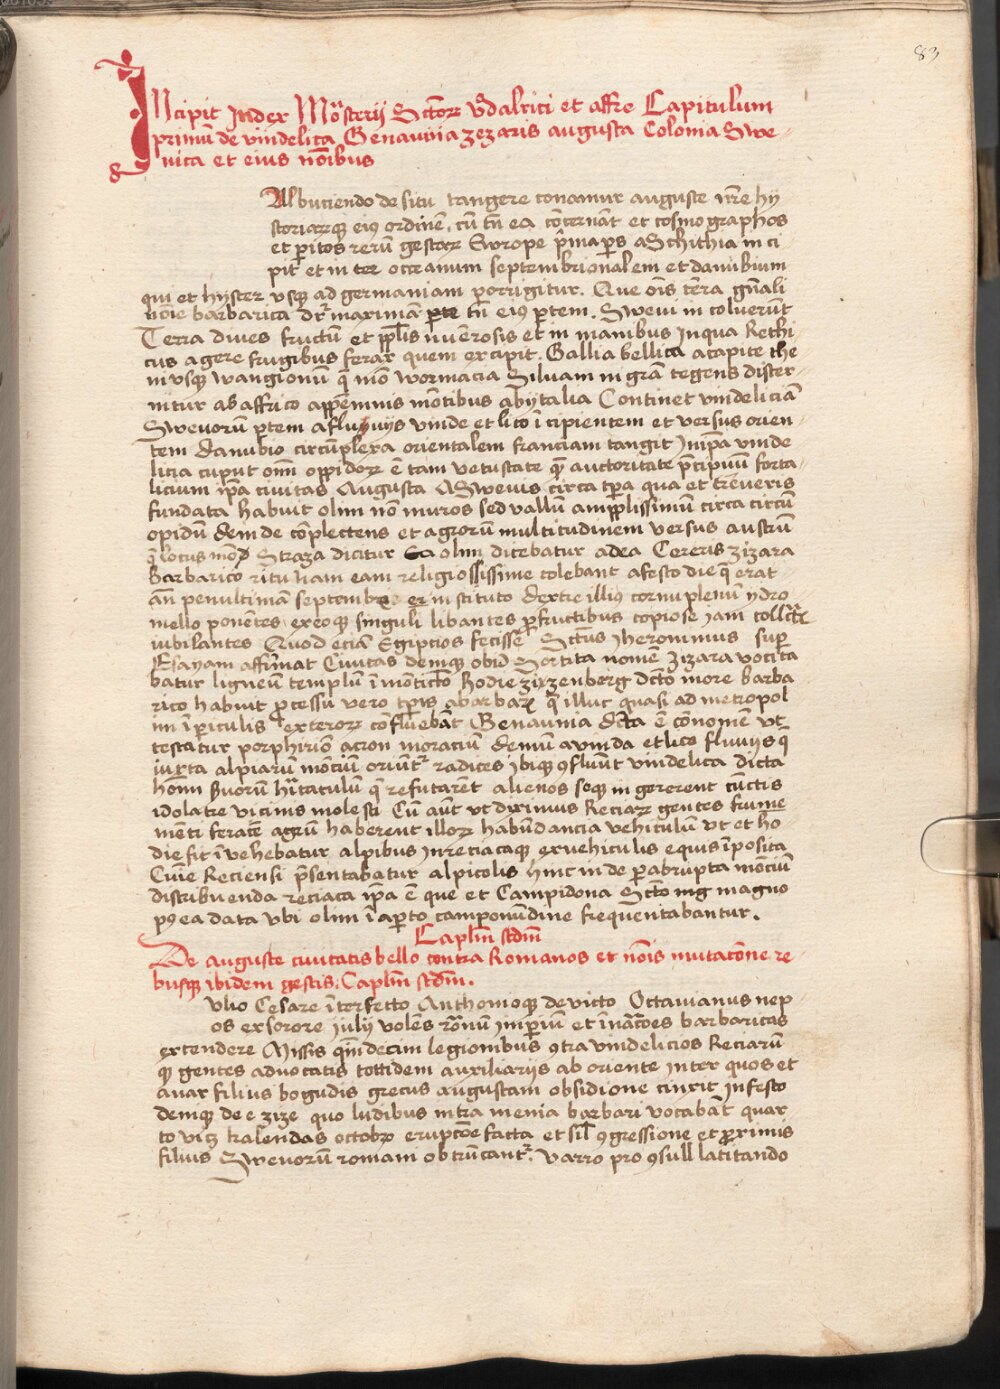 83
INcipit Index Mo͂sterij Sctōꝝ Vdalrici et affre Capitulum
primū de vindelica Genaunia zezaris augusta Colonia Swe-
nica et eius no͂ibus
Albuciendo de situ tangere conamur auguste nr̄e hy
storiaꝝqꝫ eiꝰ ordinē, cū tn̄ ea co͂cernāt et cosmographos
et peritos rerū gestaꝝ Ewrope p̄ma ps̄ a Schithia inci
pit et in tee occeanum septembrionalem et danubium
qui et hyster vsqꝫ ad germaniam porrigitur. Que oīs terra gn̄ali
noīe barbarica dr̄ maximā parte tn̄ eiꝰ partem. Swevi in coluerūt
Terra dives fructū et ppl̄is nūerosis et in manibus Inqua Rethi
cus agere frugibus ferax quem excipit. Gallia bellica acapite rhe
ni vsqꝫ wangionū q̄ mo͂ wormacia Siluam nigrā tegens dister-
nitur ab affrico appēninis mo͂tibus ab ytalia Continet vindeliciā
Swevorū partem a fluvijs vinde et lico īcipientem et versus orien-
tem danubio circūplexa orientalem franciam tangit In ip̄a vinde
licia cuput om̄i oppidoꝝ ē tam vetustate q̄ auctoritate p̄cipuū forta-
licium ip̄a civitas Augusta A Swevis circa tp̄a qua et treveris
fundata habuit olim no͂ muros sed vallū ampplissimū circa circū
opidū dem de co͂plectens et agrorū multitudinem versus austrū
q̄ locus mo͂ Straza dicitur Ea olim dicebatur adea Cereris Zizara
barbarico ritu nam eam religiossissime colebant a festo die q̄ erat
an̄ penultimā septembr̄ ex in stituto dextre illiꝰ cornu plenū ydro-
mello ponētes exeoqꝫ singuli libantes p fructibus copiose iam coll̄ctis
iubilantes Quod eciā Egipcios fecissē Sctūs iheronimus sup
Esayam affirmat Civitas demqꝫ obiū Sortita nomē Zizara vocita
batur ligneū templū ī mo͂ticl̄o Hodie zizenberg dicto more barba
rico habuit pcessu vero tp̄is abarbaꝝ q̄ illuc quasi ad metropol
im ī piculis exteroꝝ co͂fluebāt Genaunia dicta ē co͂nomē vt
testatur porphirio͂ acron moraciū demū avinda et lico fluvijs q̄
iuxta alpiarū mo͂ciū oriūtr̄ radices ibiqꝫ ꝯfluūt vindelica dicta
ho͂ni suorū hītaculū q̄ refutarēt alienos seqꝫ in gererent cūctis
idolatre vicinis molesti Cū aūt vt diximus Reciaꝝ gentes frume
menti feracē agrū haberent illoꝝ habūdancia vehiculū vt et ho-
die fit ī vehebatur alpibus in reciacaqꝫ ex vehiculis equis īposita
Cuīe Reciensi p̄sentabatur alpicolis hinc inde p abrupta mo͂ciū
distribuenda reciaca ip̄a ē que et Campidona Sctō mg magno
pꝰ ea data vbi olim ī apto campo nundine frequentabantur.
Caplm̄ scd̄m
De auguste civitatis bello contra Romanos et no͂is mutac͂one re-
busqꝫ ibidem gestis. Caplm̄ scd̄m.
Vlio Cesare īterfecto Anthomoqꝫ devicto Octavianus nep
os ex sorore iulij volēs ro͂anū imperiū et ī nac͂oes barbaricas
extendere Missis qīndecim legionibus ꝯtra vindelicios Reciarū
qꝫ gentes advocatis tottidem auxiliarijs ab oriente inter quos et
avar filius bogudis grecus augustam obsidione cinxit Infesto
demqꝫ dee zize quo ludibus intra menia barbari vocabāt quar
to vi꜀ꝫ kalendas octobꝝ erupc͂oe facta et sil̄ ꝯgressione et proximis
filius Swevorū romani obtrūcantr̄. Varro pro ꝯsull latitando